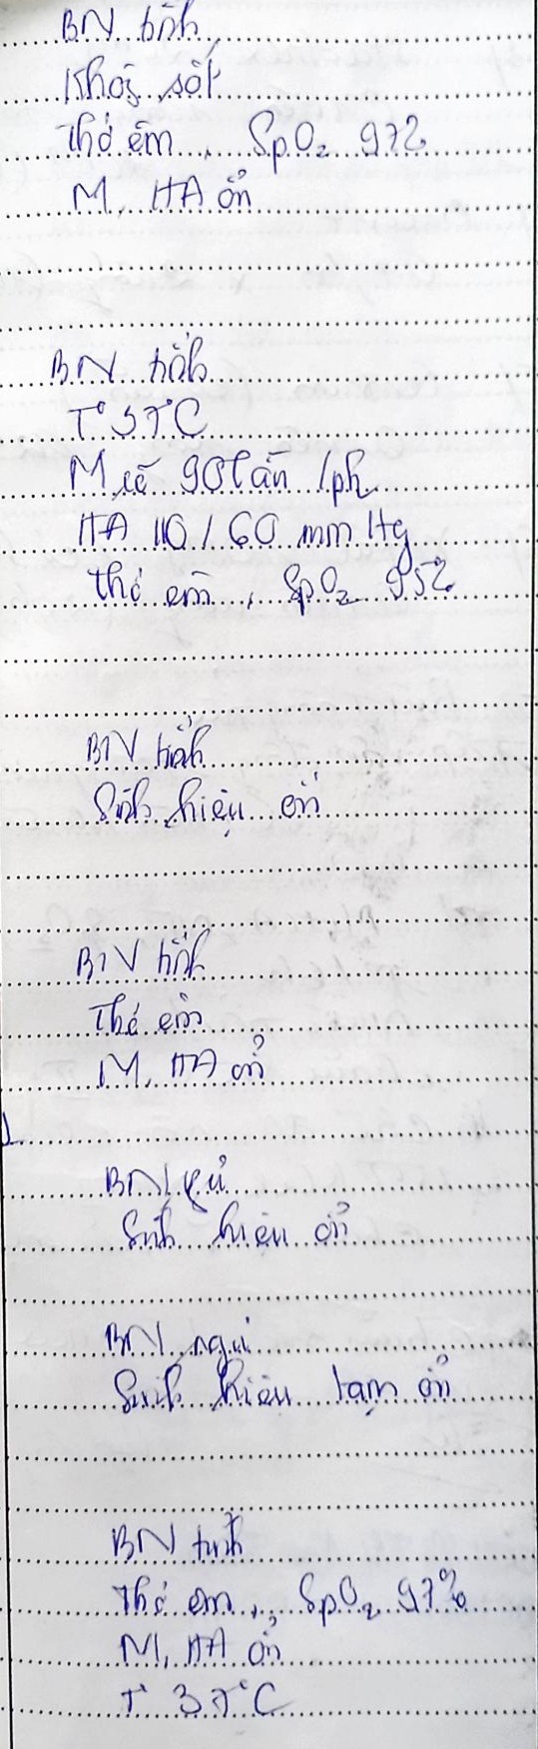 BN tỉnh
Không sốt
Thở êm, SpO₂ 97%
M, HA ổn
BN tỉnh
T° 37°C
M rõ 90 lần/ph
HA 110/60 mmHg
Thở êm, SpO₂ 95%
BN tỉnh
Sinh hiệu ổn
BN tỉnh
Thở êm
M, HA ổn
BN
Sinh hiệu ổn
BN ngủ
Sinh hiệu tạm ổn
BN tỉnh
Thở êm, SpO₂ 97%
M, HA ổn
T° 37°C